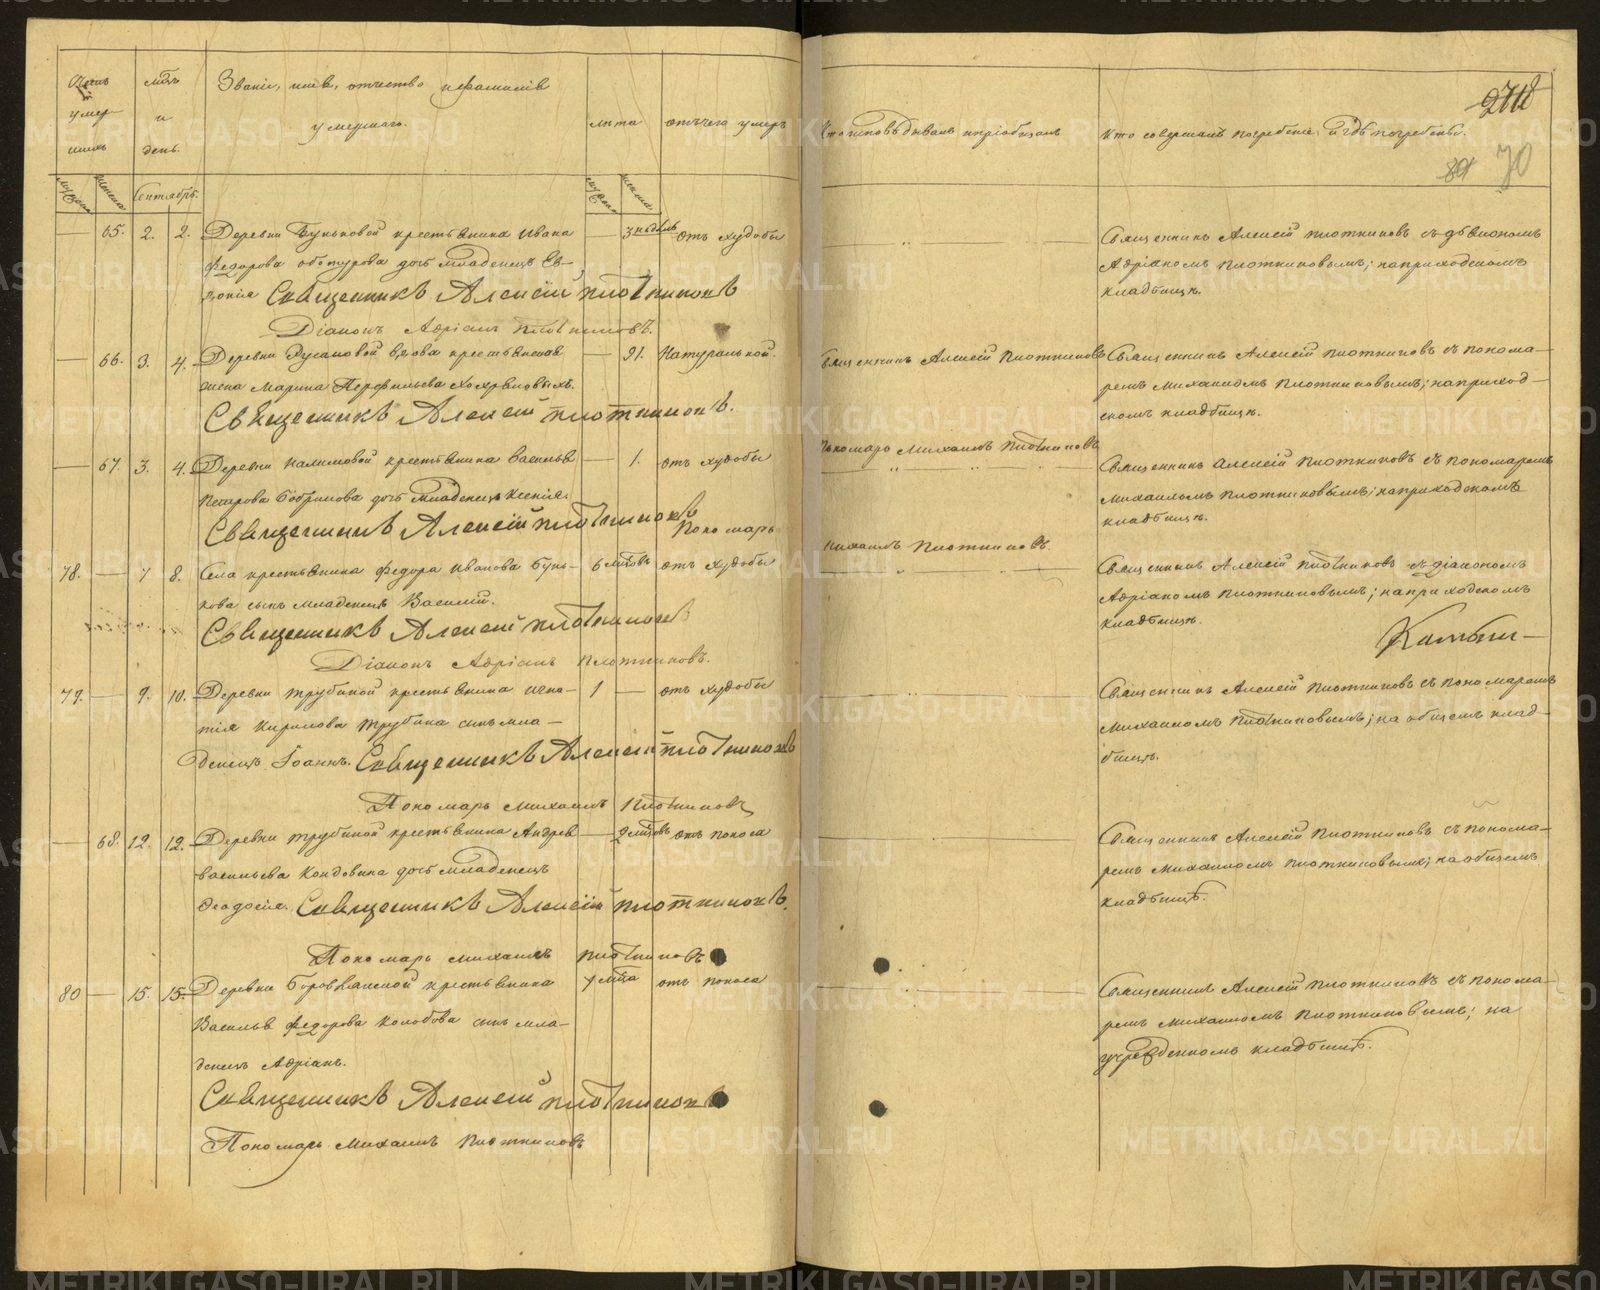 Счетъ умер шихъ
мцъ и день.
Званіе, имя, отчество и фамилія
умершаго.
лѣта
отъ чего умеръ
Кто исповѣдывалъ и пріобщалъ
Кто совершалъ погребеніе и гдѣ погребены.
70
мужска
женска
Сентябрь.
мужска
женска
65. 2. 2. Деревни Буньковой крестьянина Ивана
3 недѣль отъ худобы
Федорова дочь младенецъ Ев-
докія Священникъ Алексій Плотниковъ
Діаконъ Адріанъ Плотниковъ.
Священникъ Алексій Плотниковъ съ діакономъ
Адріаномъ Плотниковымъ; на приходскомъ
кладбищѣ.
66. 3. 4. Деревни Русаковой вдова крестьянская
91. Натуральной.
жена Марина Перфильева Хохряковыхъ.
Священникъ Алексій Плотниковъ.
Священникъ Алексій Плотниковъ
Священникъ Алексій Плотниковъ съ понома-
ремъ Михаиломъ Плотниковымъ; на приход-
скомъ кладбищѣ.
Пономарь Михаилъ Плотниковъ
67. 3. 4. Деревни Калимовой крестьянина Василья
1. отъ худобы
Петрова Бобрикова дочь младенецъ Ксенія.
Священникъ Алексій Плотниковъ
Пономарь
Михаилъ Плотниковъ.
Священникъ Алексій Плотниковъ съ пономаремъ
Михаиломъ Плотниковымъ; на приходскомъ
кладбищѣ.
78. 7 8. Села крестьянина Федора Иванова Бунь-
6 мцовъ отъ худобы
кова сынъ младенецъ Василій.
Священникъ Алексій Плотниковъ
Діаконъ Адріанъ Плотниковъ.
Священникъ Алексій Плотниковъ съ діакономъ
Адріаномъ Плотниковымъ; на приходскомъ
кладбищѣ.
79. 9. 10. Деревни Трубиной крестьянина Игна-
1 отъ худобы
тія Кирилова Трубина сынъ мла-
денецъ Іоаннъ. Священникъ Алексій Плотниковъ
Пономарь Михаилъ Плотниковъ
Священникъ Алексій Плотниковъ съ пономаремъ
Михаиломъ Плотниковымъ; на общемъ клад-
бищѣ.
68. 12. 12. Деревни Трубиной крестьянина Андрея
2 мцовъ отъ поноса
Васильева дочь младенецъ
Феодосія. Священникъ Алексій Плотниковъ.
Пономарь Михаилъ Плотниковъ
Священникъ Алексій Плотниковъ съ понома-
ремъ Михаиломъ Плотниковымъ; на общемъ
кладбищѣ.
80 15. 15. Деревни Боровлянской крестьянина
7 мца отъ поноса
Василья Федорова Колобова сынъ мла-
денецъ Адріанъ.
Священникъ Алексій Плотниковъ
Пономарь Михаилъ Плотниковъ
Священникъ Алексій Плотниковъ съ понома-
ремъ Михаиломъ Плотниковымъ; на
учрежденномъ кладбищѣ.
METRIKI.GASO-URAL.RU